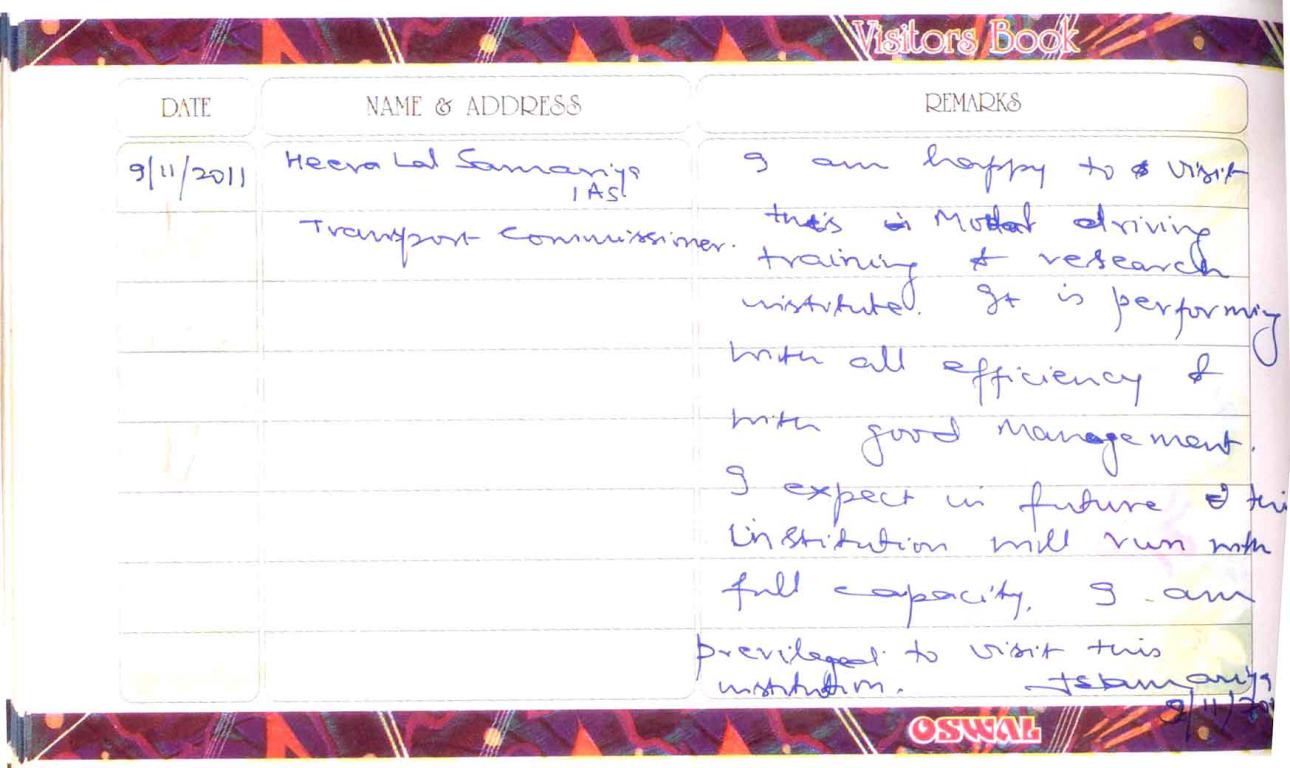 Visitors Book
DATE
NAME & ADDRESS
REMARKS
9/11/2011
Heera Lal Samariya
IAS
Transport Commissioner.
I am happy to visit
this Model driving
training & research
institute. It is performing
with all efficiency &
with good management.
I expect in future this
institution will run with
full capacity. I am
previleged to visit this
institution.
9/11/201
OSWAL